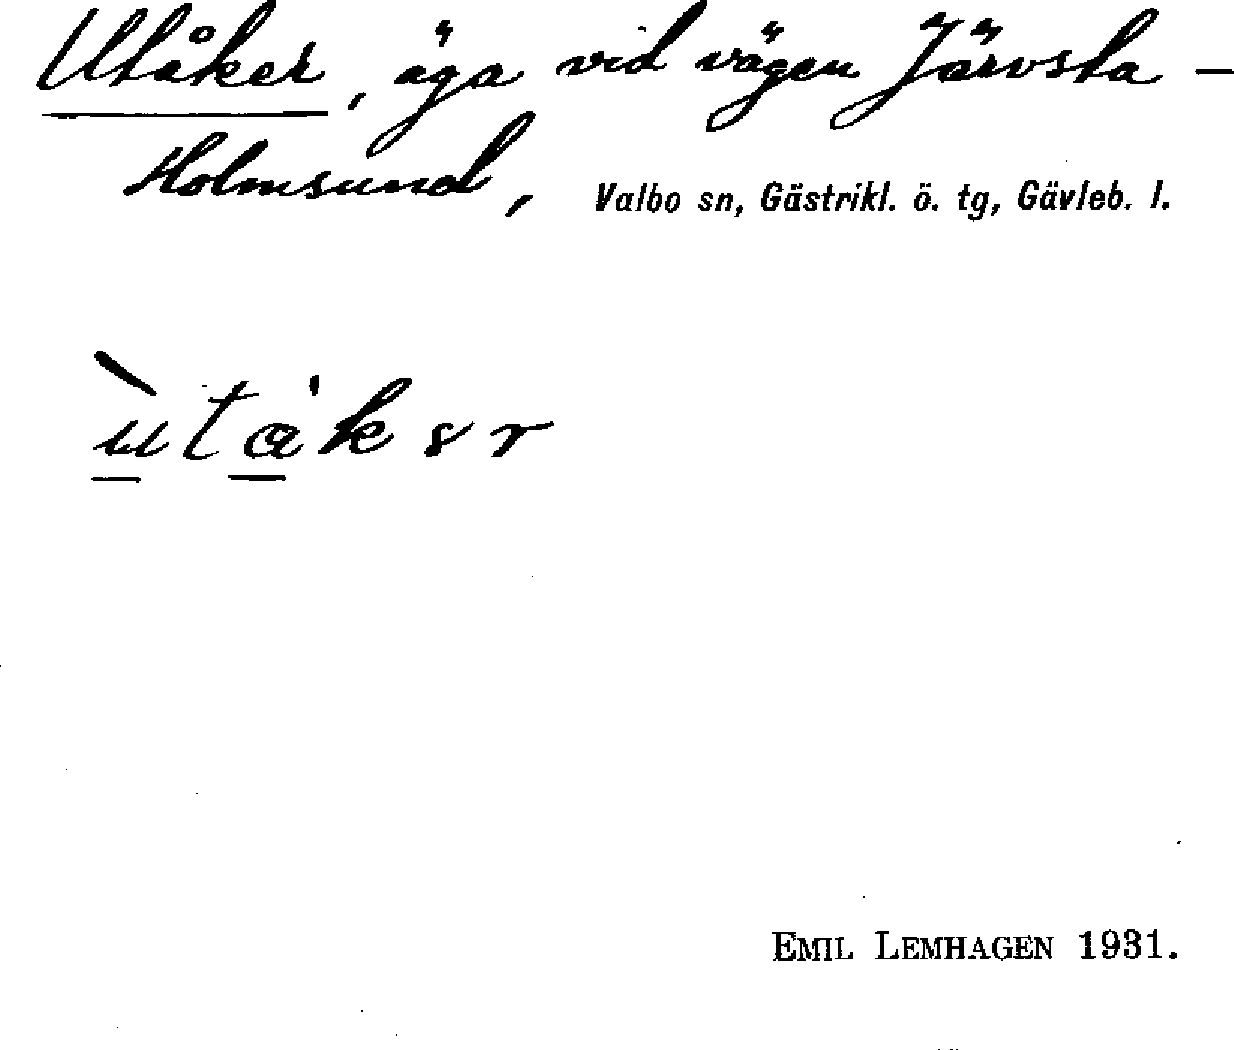 Utåker, äga vid vägen Järvsta –
Holmsund, Valbo sn, Gästrikl. ö. tg, Gävleb. l.
ùta'kər
EMIL LEMHAGEN 1931.